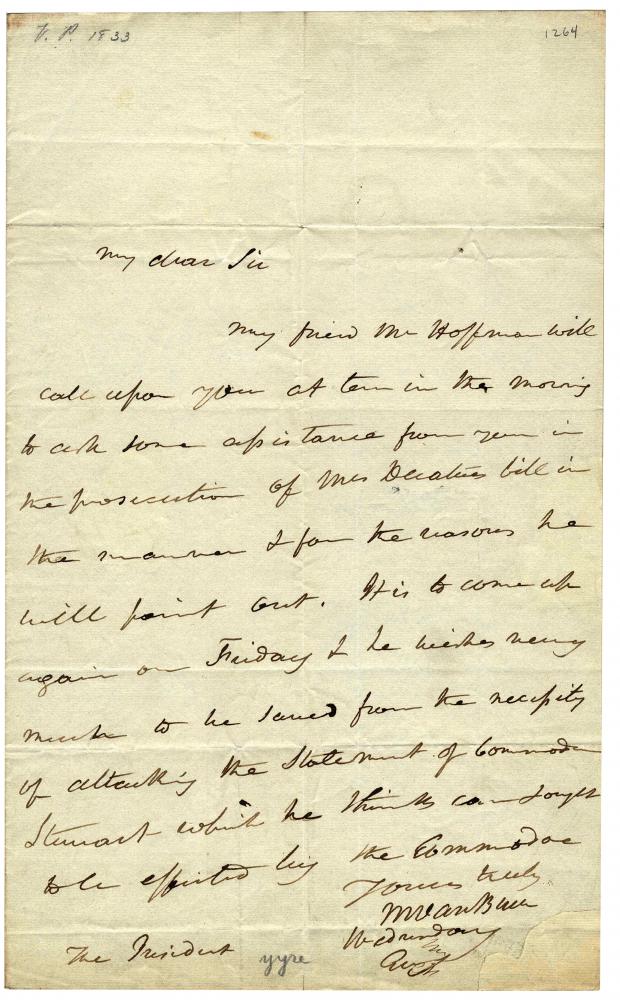 V. P. 1833
1264
My dear Sir
My friend Mr Hoffman will
call upon you at ten in the morning
to ask some assistance from you in
the prosecution of Mrs Decaturs bill in
the manner & for the reasons he
will point out. It is to come up
again on Friday & he wishes very
much to be saved from the necessity
of attacking the Statement of Commodore
Stewart which he thinks can & ought
to be effected by the Commodore
Yours truly
MVanBuren
Wednesday
The President